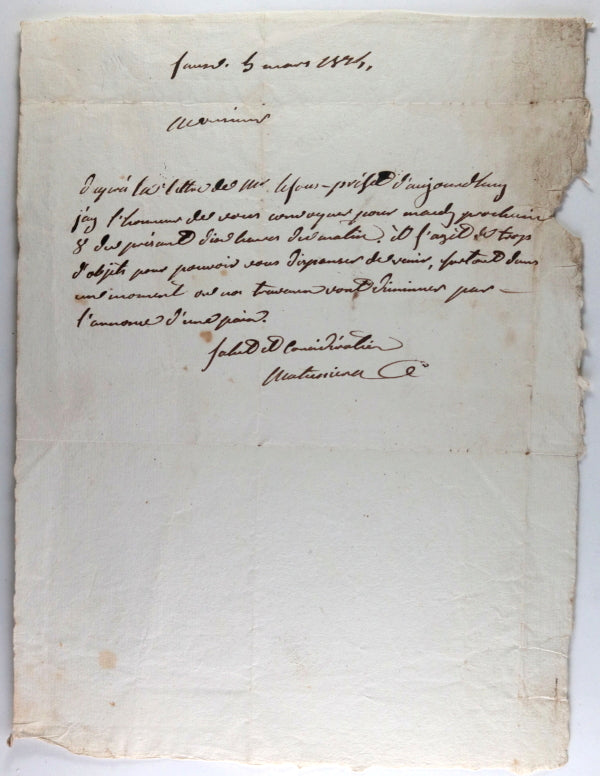 5 mars 1814,
Monsieur
d'après la lettre de Mr. le sous-préfet d'aujourdhuy
j'ay l'honneur de vous convoquer pour mardy prochain
8 du présant dix heures du matin. il s'agit de trop
d'objets pour pouvoir vous dispenser de venir, surtout dans
une moment ou nos travaux vont diminuer par
l'annonce d'une paix.
salut et Considération